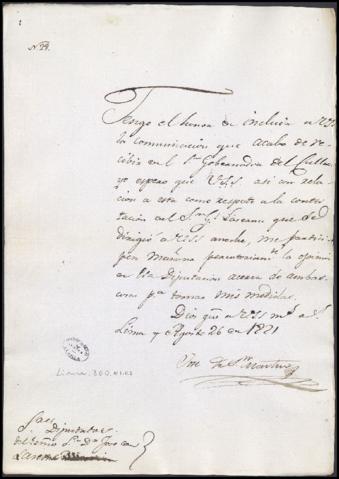 N. 29.
Tengo el honor de incluir a VSS
la comunicacion que acabo de re-
cibir del Sr. Gobernador del Callao
yo espero que VSS. asi con rela-
cion a esta como respecto a la contes-
tacion del Sr. Laserna que se
dirigió a VSS anoche, me partici-
pen mañana la opinion
de esa Diputacion acerca de ambas
para tomar mis medidas.
Dios gue a VSS ms as.
Lima y Agosto 26 de 1821
José de Sn Martin
Lima, 300, n1.
Sres Diputados
Sr. Dn José
Laserna